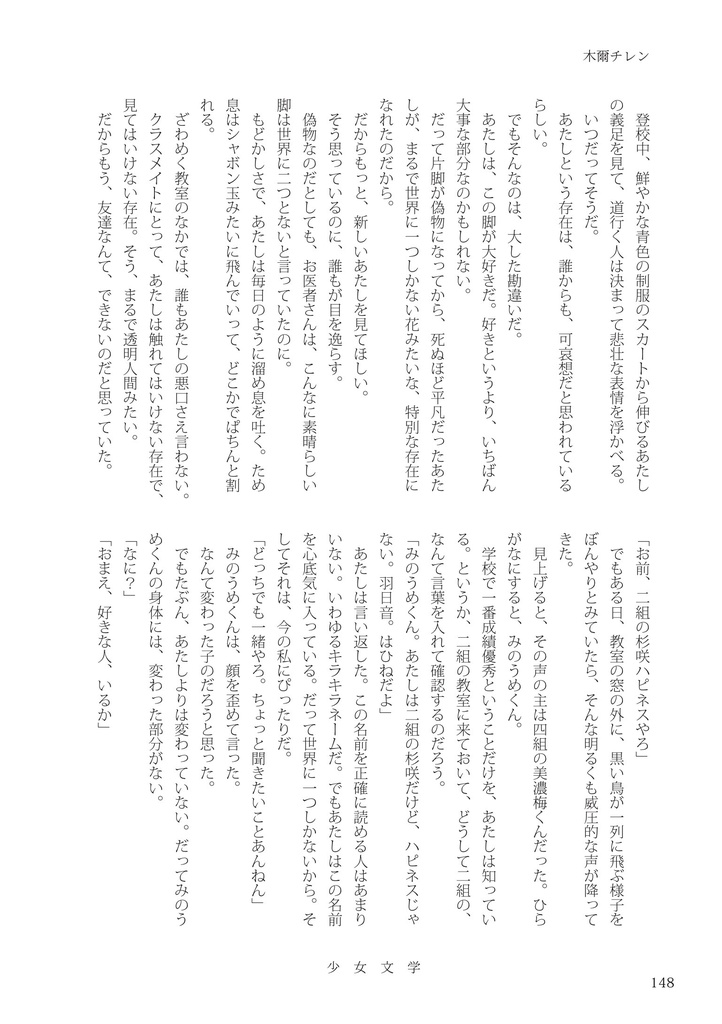 木爾チレン
　登校中、鮮やかな青色の制服のスカートから伸びるあたし
の義足を見て、道行く人は決まって悲壮な表情を浮かべる。
　いつだってそうだ。
　あたしという存在は、誰からも、可哀想だと思われている
らしい。
　でもそんなのは、大した勘違いだ。
　あたしは、この脚が大好きだ。好きというより、いちばん
大事な部分なのかもしれない。
　だって片脚が偽物になってから、死ぬほど平凡だったあた
しが、まるで世界に一つしかない花みたいな、特別な存在に
なれたのだから。
　だからもっと、新しいあたしを見てほしい。
　そう思っているのに、誰もが目を逸らす。
　偽物なのだとしても、お医者さんは、こんなに素晴らしい
脚は世界に二つとないと言っていたのに。
　もどかしさで、あたしは毎日のように溜め息を吐く。ため
息はシャボン玉みたいに飛んでいって、どこかでぱちんと割
れる。
　ざわめく教室のなかでは、誰もあたしの悪口さえ言わない。
　クラスメイトにとって、あたしは触れてはいけない存在で、
見てはいけない存在。そう、まるで透明人間みたい。
　だからもう、友達なんて、できないのだと思っていた。
「お前、二組の杉咲ハピネスやろ」
　でもある日、教室の窓の外に、黒い鳥が一列に飛ぶ様子を
ぼんやりとみていたら、そんな明るくも威圧的な声が降って
きた。
　見上げると、その声の主は四組の美濃梅くんだった。ひら
がなにすると、みのうめくん。
　学校で一番成績優秀ということだけを、あたしは知ってい
る。というか、二組の教室に来ておいて、どうして二組の、
なんて言葉を入れて確認するのだろう。
「みのうめくん。あたしは二組の杉咲だけど、ハピネスじゃ
ない。羽日音。はひねだよ」
　あたしは言い返した。この名前を正確に読める人はあまり
いない。いわゆるキラキラネームだ。でもあたしはこの名前
を心底気に入っている。だって世界に一つしかないから。そ
してそれは、今の私にぴったりだ。
「どっちでも一緒やろ。ちょっと聞きたいことあんねん」
　みのうめくんは、顔を歪めて言った。
　なんて変わった子のだろうと思った。
　でもたぶん、あたしよりは変わっていない。だってみのう
めくんの身体には、変わった部分がない。
「なに？」
「おまえ、好きな人、いるか」
少女文学
148